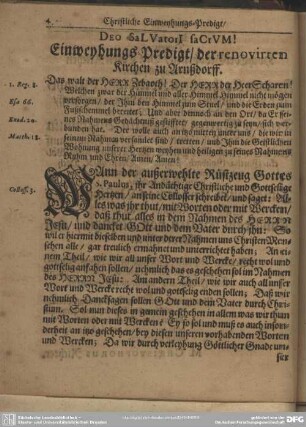 4. Christliche Einweyhungs-Predigt/
DEO SaLVatorI saCrVM!
Einweyhungs Predigt/ der renovirten
Kirchen zu Arnßdorff.
Das walt der HERR Zebaoth! Der HERR der HeerScharen!
1. Reg. 8. Welchen zwar der Himmel und aller Himmel Himmel nicht mögen
versorgen/ der Ihm den Himmel zum Stuel/ und die Erden zum
Esa 66. Fußschemmel bereitet. Und aber dennoch an den Ort/ da Er sei-
Exod. 20. nes Nahmens Gedächtnüß gestifftet/ gegenwertig zu seyn/ sich ver-
bunden hat. Der wolle auch an itzo mitten unter uns/ die wir in
Matth. 18. seinem Nahmen versamlet sind/ treten/ und Ihm die Geistlichen
Wohnung unserer Hertzen weyhen und heiligen zu seines Nahmens
Ruhm und Ehren/ Amen/ Amen!
WAnn der außerwehlte Rüstzeug Gottes
S. Paulus/ ihr Andächtige Christliche und Gottselige
Hertzen/ an seine Colosser schreibet/ und saget: Al-
Coloss. 3. les was ihr thut/ mit Worten oder mit Wercken/
daß thut alles in dem Nahmen des HERRN
Jesu/ und dancket GOtt und dem Vater durch ihn: So
wil er hiermit dieselben und unter derer Nahmen uns Christen Men-
schen alle/ gar treulich ermahnet und unterrichtet haben: An ei-
nem Theil/ wie wir all unser Wort und Wercke/ recht wol und
gottselig anfahen sollen/ nehmlich das es geschehen sol im Nahmen
des HERRN Jesu: Am andern Theil/ wie wir auch all unser
Wort und Werck recht wol und gottselig enden sollen; Daß wir
nehmlich Dancksagen sollen GOtt und dem Vater durch Chri-
stum. Sol nun dieses in gemein geschehen in allem was wir thun
mit Worten oder mit Wercken: Ey so sol und muß es auch inson-
derheit an itzo geschehen/ bey diesen unseren vorhabenden Worten
und Wercken; Da wir durch verleyhung Göttlicher Gnaden un-
ser